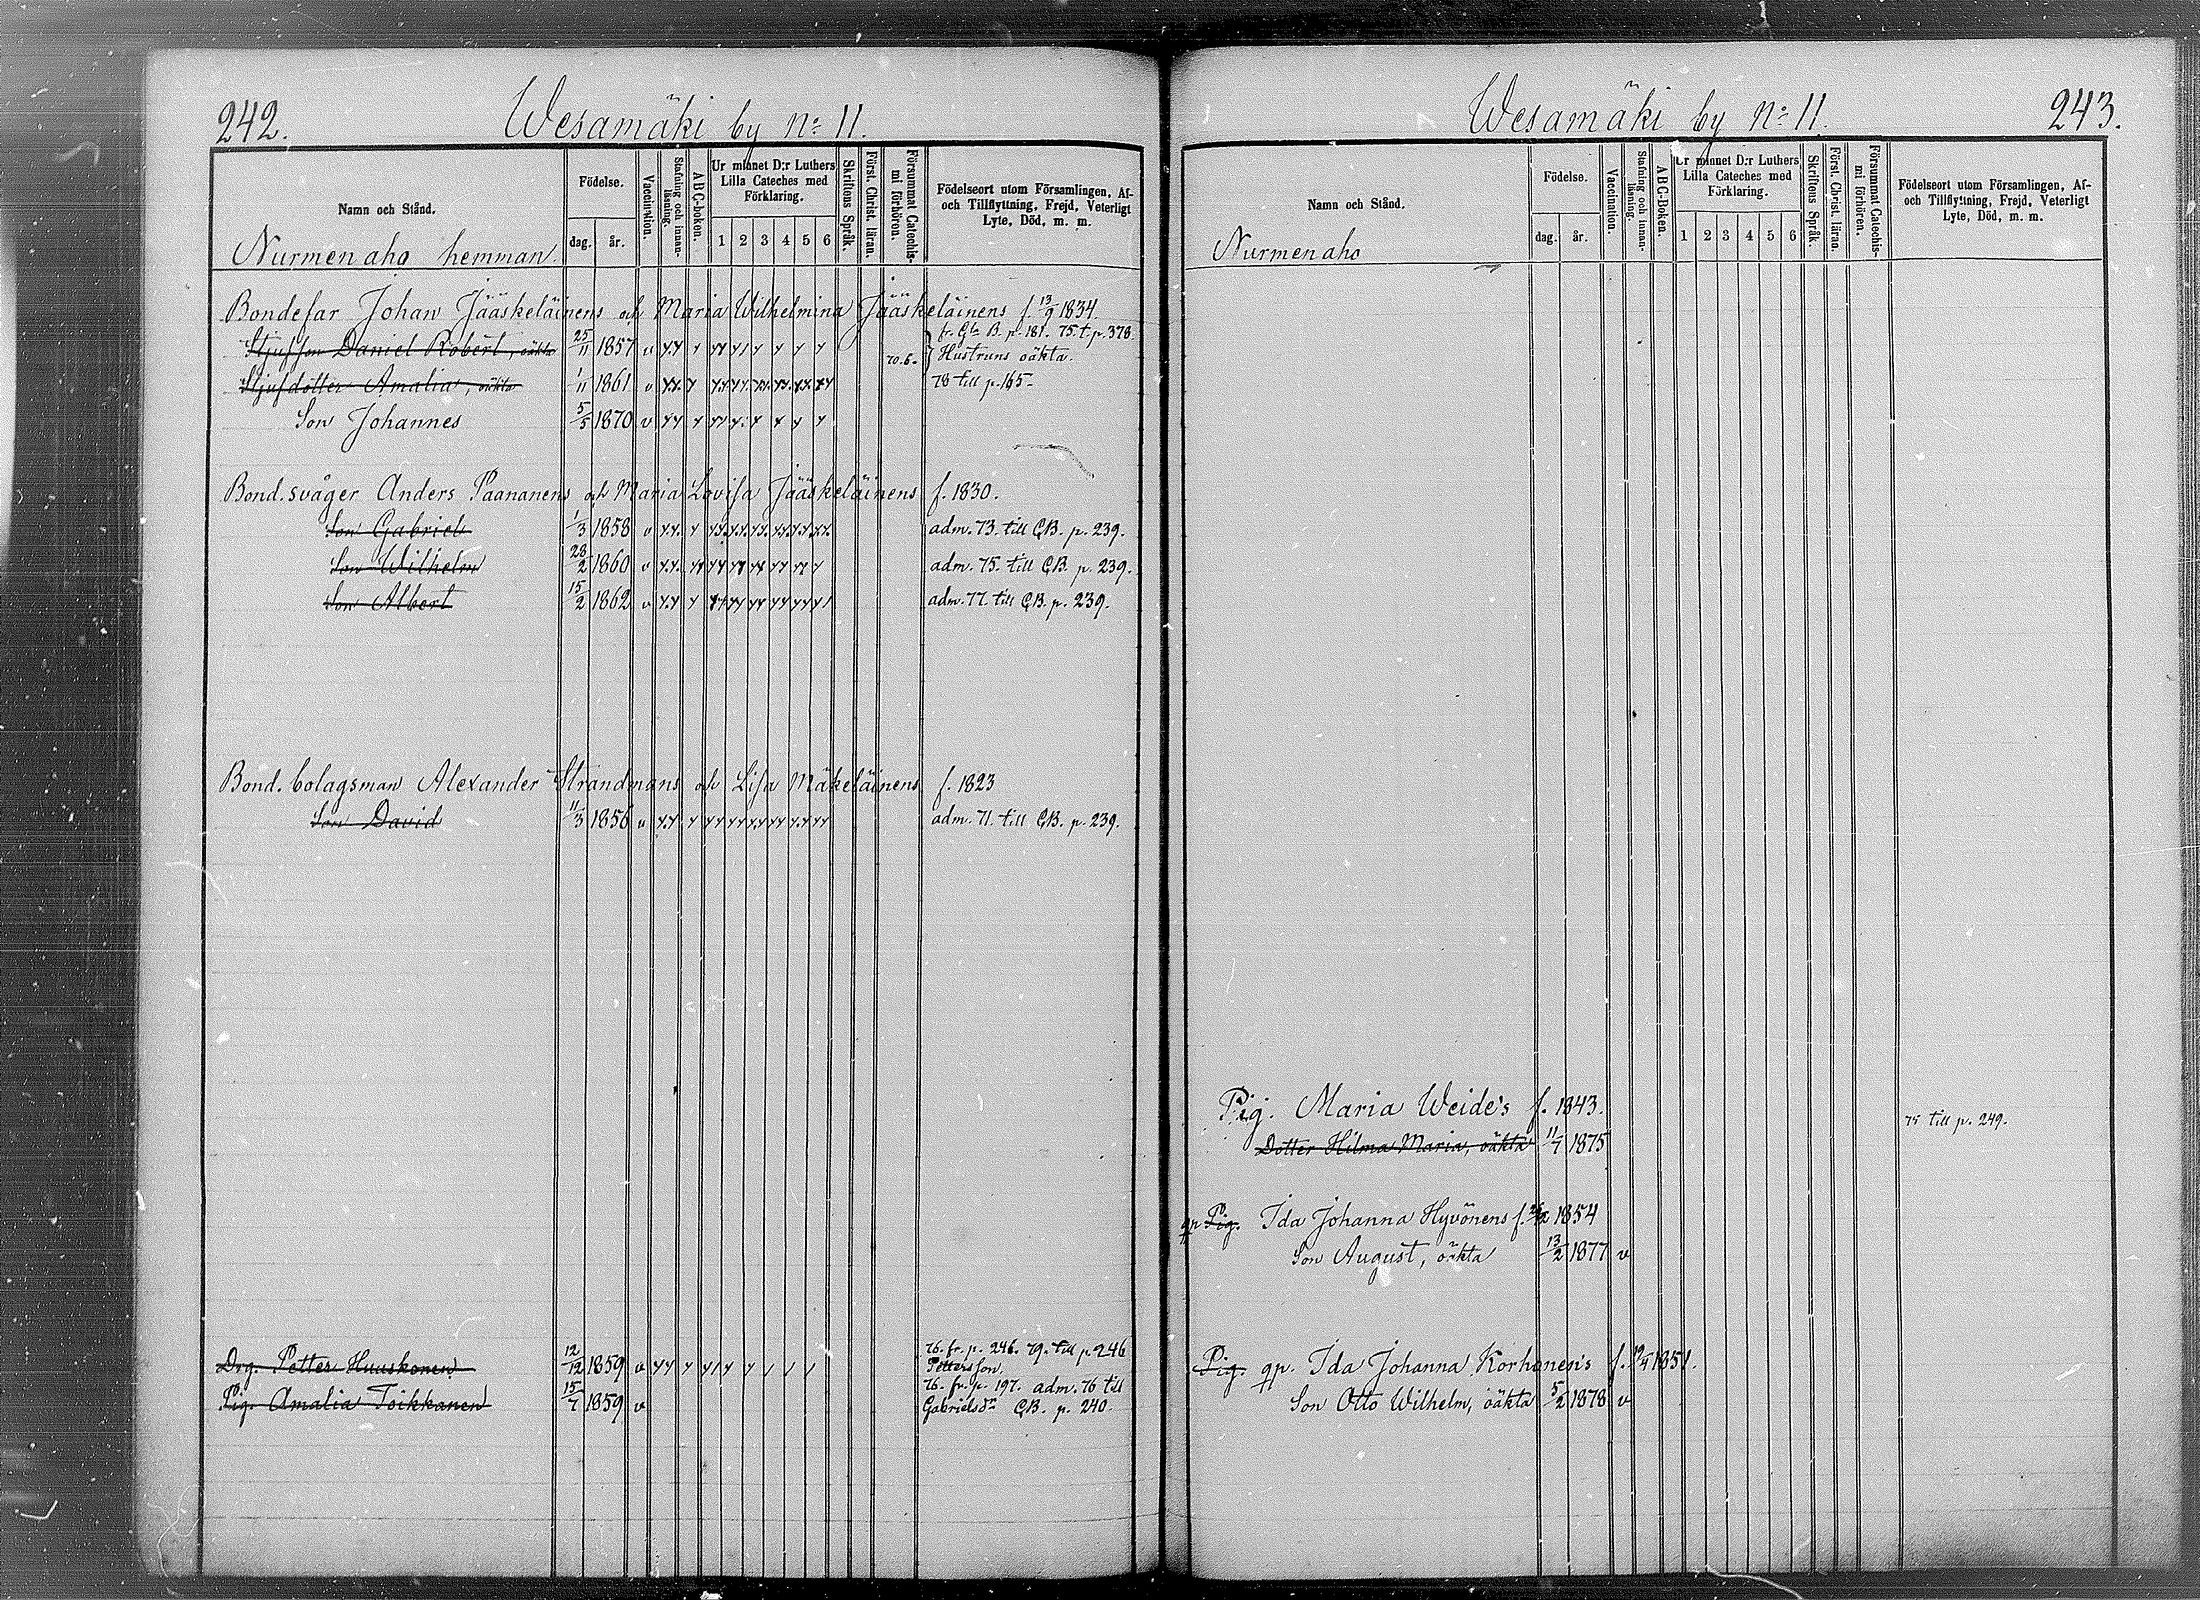 242.
Wesamäki by No 11.
Namn och Stånd.
Födelse.
dag.
år.
Vaccination.
Stafning och innan-läsning.
ABC-boken.
Ur minnet D:r Luthers Lilla Cateches med Förklaring.
1 2 3 4 5 6
Skriftens Språk.
Först. Christ. läran.
Försummat Catechis-mi förhören.
Födelseort utom Församlingen, Af- och Tillflyttning, Frejd, Veterligt Lyte, Död, m. m.
Nurmenaho hemman.
Bondefar Johan Jääskeläinens och Maria Wilhelmina Jääskeläinens f. 13/9 1834.
fr. Gla B. p. 181. 75. t. p. 378
Stjufson Daniel Robert, oäkta 25/11 1857 v Hustruns oäkta.
70.6.
Stjufdotter Amalia, oäkta 1/11 1861 v 78 till p. 165.
Son Johannes 5/5 1870 v
Bond. svåger Anders Paananens och Maria Lovisa Jääskeläinens f. 1830.
Son Gabriel 1/3 1858 v adm. 73. till CB. p. 239.
Son Wilhelm 28/2 1860 v adm. 75. till CB. p. 239.
Son Albert 15/2 1862 v adm. 77. till CB. p. 239.
Bond. bolagsman Alexander Strandmans och Lisa Mäkeläinens f. 1823
Son David 11/3 1856 v adm. 71. till CB. p. 239.
76. fr. p. 246. 79. till p. 246
Drg. Petter Huuskonen 12/12 1859 v Pettersson.
76. fr. p. 197. adm. 76 till
Pig. Amalia Toikkanen 15/7 1859 v Gabrielsdr CB. p. 240.
Wesamäki by No 11.
243.
Namn och Stånd.
Födelse.
dag.
år.
Vaccination.
Stafning och innan-läsning.
ABC-Boken.
Ur minnet D:r Luthers Lilla Cateches med Förklaring.
1 2 3 4 5 6
Skriftens Språk.
Först. Christ. läran.
Försummat Catechis-mi förhören.
Födelseort utom Församlingen, Af- och Tillflyttning, Frejd, Veterligt Lyte, Död, m. m.
Nurmenaho
Pig. Maria Weide's f. 1843.
75 till p. 249.
Dotter Hilma Maria, oäkta 11/7 1875
qp Pig. Ida Johanna Hyvönens f. 1854
Son August, oäkta 13/2 1877 v
Pig. qp. Ida Johanna Korhonen's f. 1851.
Son Otto Wilhelm, oäkta 5/2 1878 v